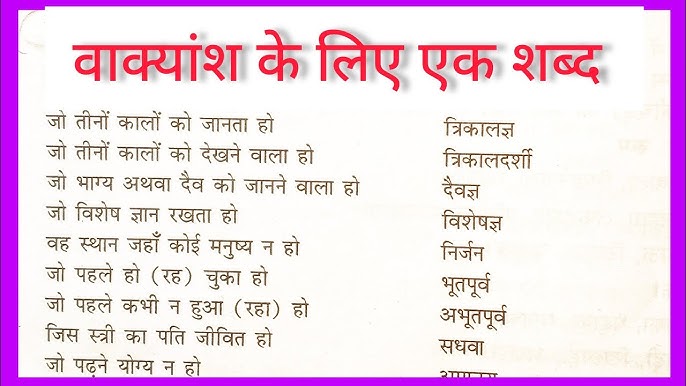 वाक्यांश के लिए एक शब्द
जो तीनों कालों को जानता हो त्रिकालज्ञ
जो तीनों कालों को देखने वाला हो त्रिकालदर्शी
जो भाग्य अथवा दैव को जानने वाला हो दैवज्ञ
जो विशेष ज्ञान रखता हो विशेषज्ञ
वह स्थान जहाँ कोई मनुष्य न हो निर्जन
जो पहले हो (रह) चुका हो भूतपूर्व
जो पहले कभी न हुआ (रहा) हो अभूतपूर्व
जिस स्त्री का पति जीवित हो सधवा
जो पढ़ने योग्य न हो